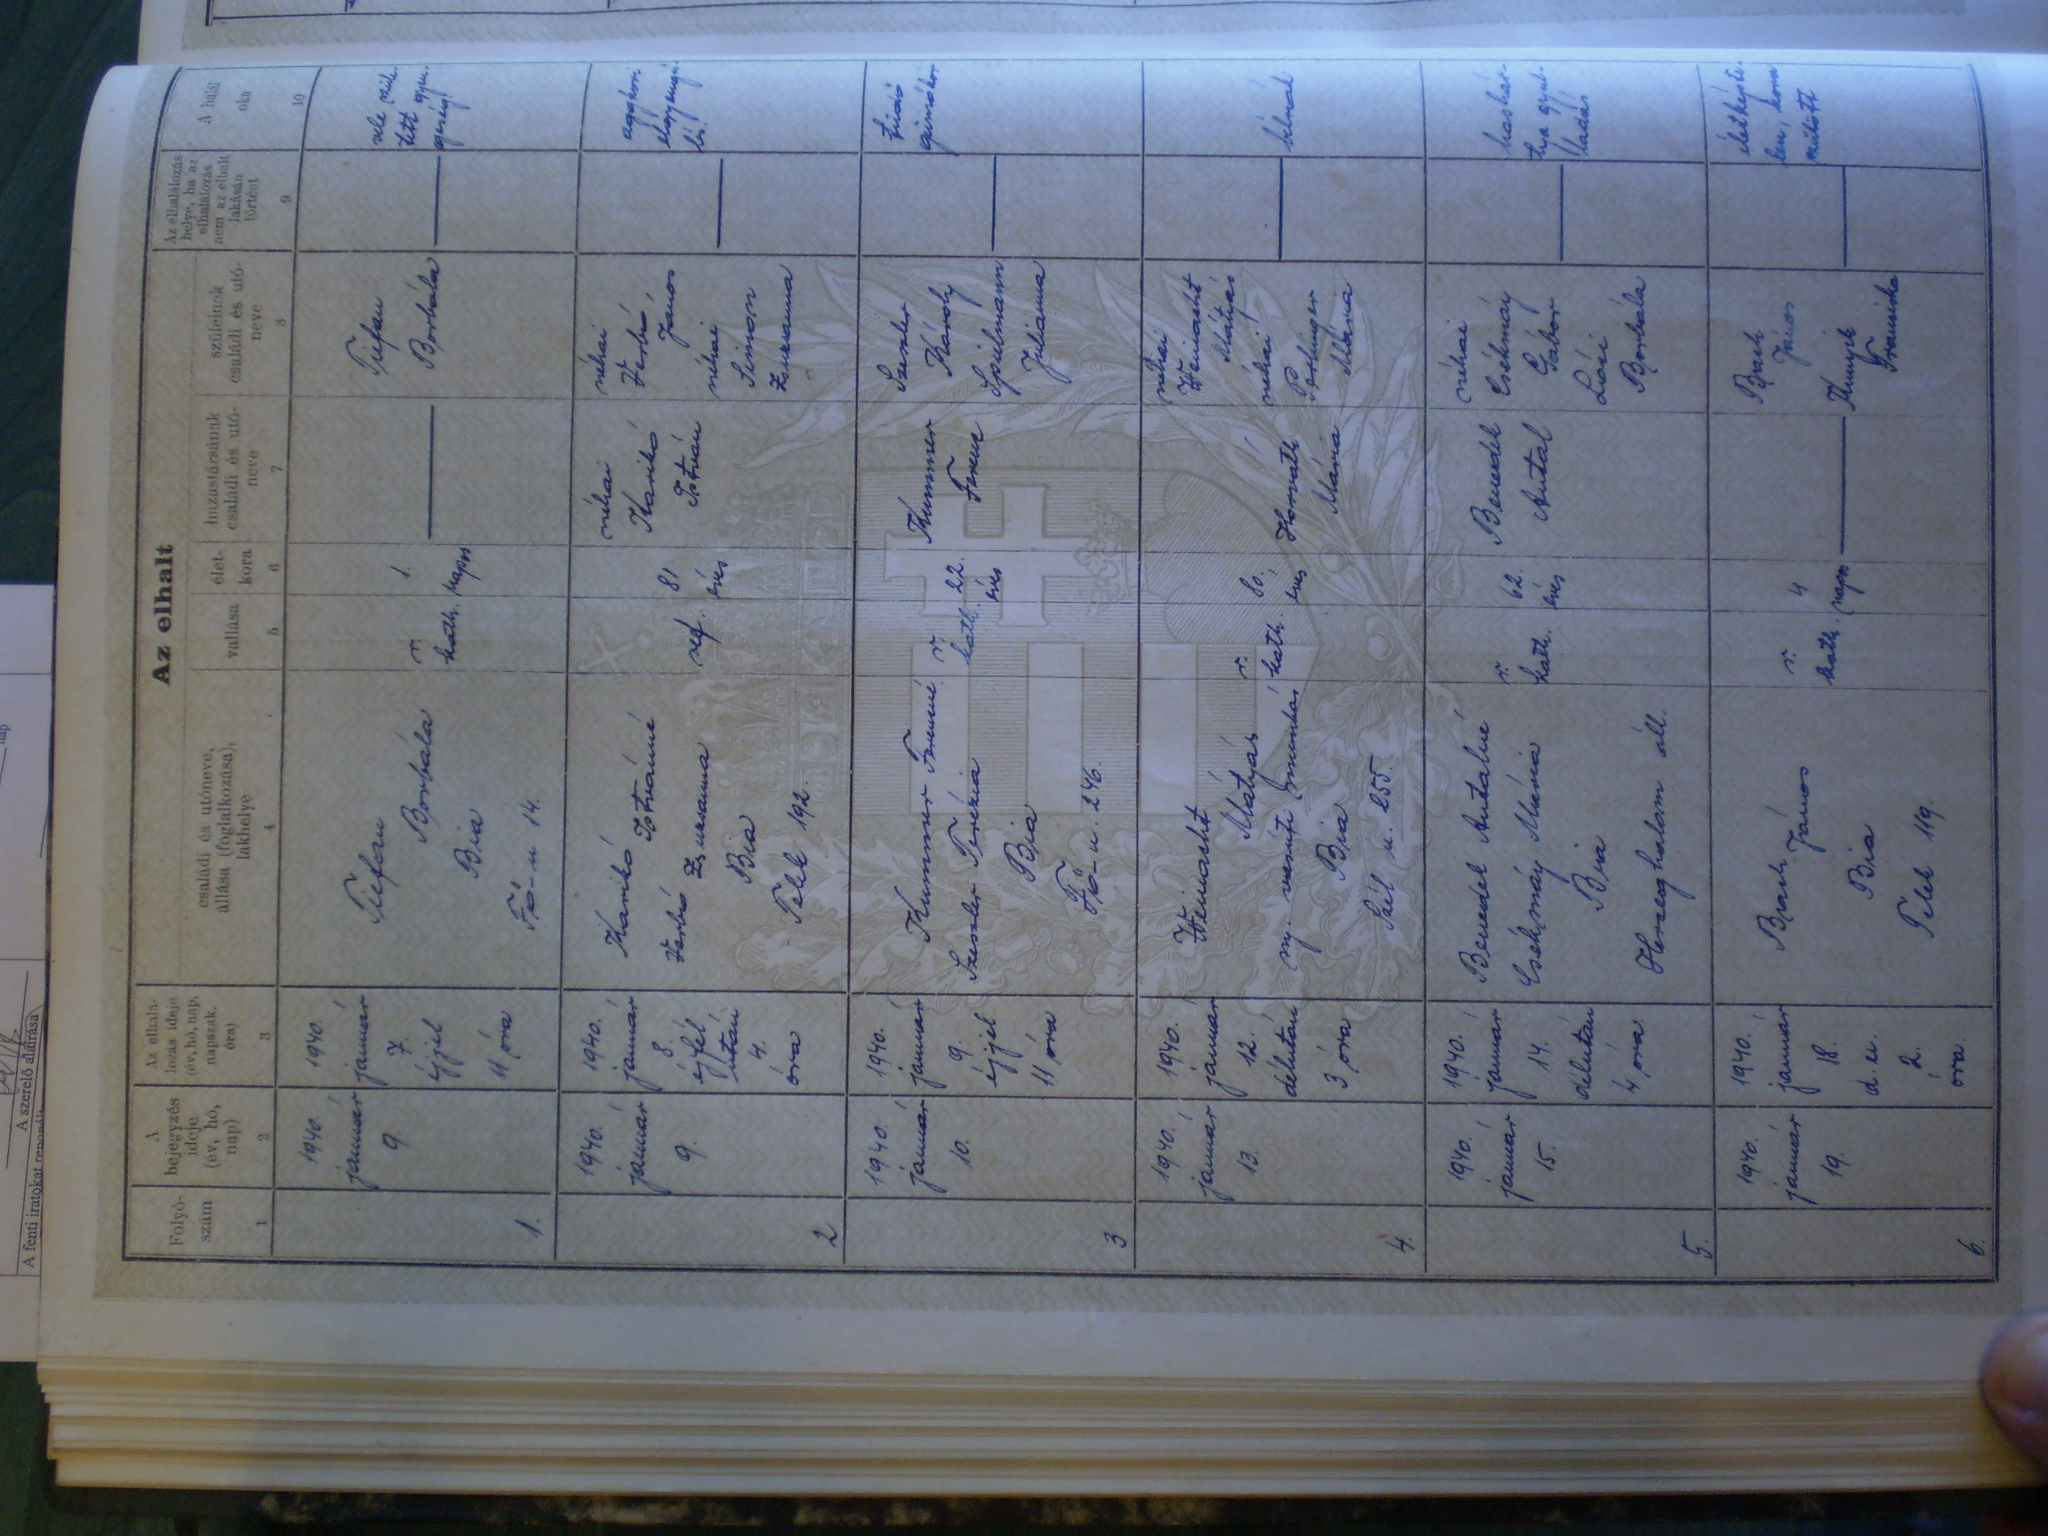 Az elhalt
Folyó-
szám
A
bejegyzés
ideje
(év, hó,
nap)
Az elhalá-
lozás ideje
(év, hó, nap,
napszak,
óra)
családi és utóneve,
állása (foglalkozása),
lakhelye
vallása
élet-
kora
házastársának
családi és utó-
neve
szüleinek
családi és utó-
neve
Az elhalálozás
helye, ha az
elhalálozás
nem az elhalt
lakásán
történt
A halál
oka
1
2
3
4
5
6
7
8
9
10
1.
1940
január
9
1940.
január
7.
éjjel
11 óra
Tiefau
Borbála
Bia
Fő-u 14.
r.
kath.
1.
napos
Tiefau
Borbála
vele szüle-
tett gyen-
geség.
2
1940.
január
9.
1940.
január
8.
éjfél
után
4.
óra
Karikó
Istvánné
Zsuzsanna
Bia
Telek 192.
ref.
81
éves
néhai
Karikó
István
néhai
János
néhai
Simon
Zsuzsanna
aggkori
elgyengü-
lés.
3
1940.
január
10.
1940.
január
9.
éjjel
11 óra
Kummer Ferencné
Szeszler Terézia
Bia
Fő-u. 246.
r.
kath.
22.
éves
Kummer
Ferenc
Szeszler
Károly
Spielmann
Julianna
tüdő
gümőkór
4.
1940.
január
13.
1940.
január
12.
délután
3 óra
Weinacht
Mátyás
ny. vasúti munkás
Bia
Szél u. 255.
r.
kath.
80.
éves
Horváth
Mária
néhai
Weinacht
Mátyás
néhai
Perlinger
Mária
5.
1940.
január
15.
1940.
január
14.
délután
4 óra.
Benedek Antalné
Csékmáy Mária
Bia
Herceghalom áll.
r.
kath.
62.
éves
Benedek
Antal
néhai
Csékmáy
Gábor
Lóci
Borbála
hashár-
tya gyul-
ladás
6.
1940.
január
19.
1940.
január
18.
d. u.
2.
óra.
János
Bia
Telek 119.
r.
kath.
4
napos
János
Kunyik
Franciska
életképte-
len, kora
szülött
A szerelő aláírása
A fenti iratokat
nap